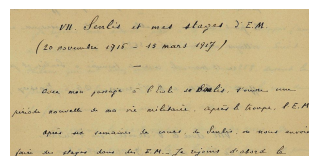 VII. Senlis et mes stages d'E.M.
(20 novembre 1916 - 15 mars 1917)
—
Avec mon passage à l'École de Senlis, s'ouvre une
période nouvelle de ma vie militaire. Après la troupe, l'E.M.
Après six semaines de cours, à Senlis, on nous envoie
faire des stages dans des E.M. Je rejoins d'abord le